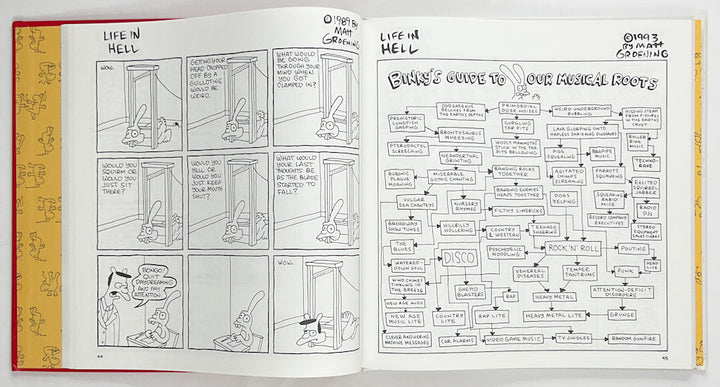 LIFE IN
HELL
©1989 BY
MATT
GROENING
WOW.
GETTING YOUR
HEAD CHOPPED
OFF BY A
GUILLOTINE
WOULD BE
WEIRD.
WHAT WOULD
BE GOING
THROUGH YOUR
MIND WHEN
YOU GOT
CLAMPED IN?
WOULD YOU
SQUIRM OR
WOULD YOU
JUST SIT
THERE?
WOULD YOU
YELL OR
WOULD YOU
JUST KEEP
YOUR MOUTH
SHUT?
WHAT WOULD
YOUR LAST
THOUGHTS BE
AS THE BLADE
STARTED TO
FALL?
BONGO!
QUIT
DAYDREAMING
AND PAY
ATTENTION.
WOW.
44
LIFE IN
HELL
©1993
BY MATT
GROENING
BINKY'S GUIDE TO YOUR MUSICAL ROOTS
ODD GASEOUS
BELCHES FROM
THE EARTH'S DEPTHS
PRIMORDIAL
OOZE NOISES
WEIRD UNDERGROUND
BUBBLING
HISSING STEAM
FROM FISSURES
IN THE EARTH'S
CRUST
PREHISTORIC
LUNGFISH
GASPING
GURGLING
TAR PITS
LAVA GLORPING ONTO
HAPLESS SHRIEKING DINOSAURS
BRONTOSAURUS
WHEEZING
ROLLER
RINK
PTERODACTYL
SCREECHING
WOOLY MAMMOTHS
STUCK IN THE TAR
PITS BELLOWING
PIGS
SQUEALING
BAGPIPE
MUSIC
NEANDERTHAL
GRUNTING
TECHNO-
RAVE
BUBONIC
PLAGUE
MOANING
MISERABLE
GOTHIC CHANTING
BANGING ROCKS
TOGETHER
AGITATED
CHIMPS
SCREAMING
PARROTS
SQUAWKING
EXCITED
SQUIRREL
JABBER
VULGAR
SEA CHANTEYS
NURSERY
RHYMES
BANGING ENEMIES'
HEADS TOGETHER
DOGS
YELPING
SQUEAKING
RABID
MICE
RADIO
DJS
FILTHY LIMERICKS
BROADWAY
SHOW TUNES
HILLBILLY
HOLLERING
COUNTRY
& WESTERN
TEENAGE
SNEERING
RECORD COMPANY
EXECUTIVES
STEREO
EQUIPMENT
SALES CLERKS
THE
BLUES
DISCO
PSYCHEDELIC
NOODLING
ROCK 'N' ROLL
POUTING
WATERED-
DOWN SOUL
VENEREAL
DISEASES
TEMPER
TANTRUMS
PUNK
WIND CHIMES
TINKLING IN
THE BREEZE
GHETTO
BLASTERS
RAP
HEAVY METAL
ATTENTION-DEFICIT
DISORDERS
NEW AGE MUSIC
NEW AGE
MUSIC LITE
COUNTRY
LITE
RAP LITE
HEAVY METAL LITE
GRUNGE
CLEVER ANSWERING
MACHINE MESSAGES
CAR ALARMS
VIDEO GAME MUSIC
TV JINGLES
RANDOM GUNFIRE
45